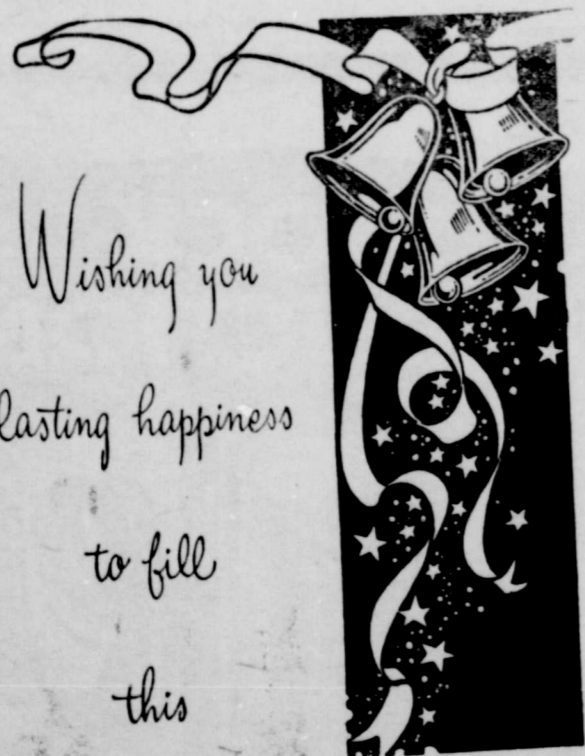 Wishing you
lasting happiness
to fill
this